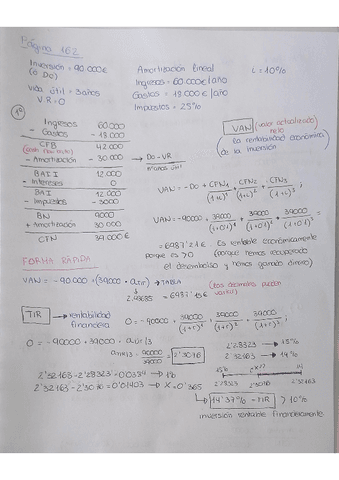 Página 162
Inversión = 90.000€
(o Do)
Vida útil = 3 años
V.R = 0
Amortización lineal
Ingresos = 60.000€/año
Gastos = 18.000€/año
Impuestos = 25%
i = 10%
1º
Ingresos 60.000
- Gastos - 18.000
CFB 42.000
- Amortización - 30.000 → Do-VR / años útil
BAII 12.000
- Intereses 0
BAI 12.000
- Impuestos - 3000
BN 9000
+ Amortización 30.000
CFN 39.000€
VAN (valor actualizado neto)
la rentabilidad económica
de la inversión
VAN = -Do + CFN1/(1+i)¹ + CFN2/(1+i)² + CFN3/(1+i)³ ;
VAN = -90000 + 39000/(1+0'1)¹ + 39000/(1+0'1)² + 39000/(1+0'1)³ =
= 6987'21€ Es rentable económicamente
porque es >0 (porque hemos recuperado
el desembolso y hemos ganado dinero)
FORMA RÁPIDA
VAN = -90.000 + (39000 · a3¬i) → TABLA
2'48685 = 6987'15€
(Los decimales pueden
variar)
TIR → rentabilidad
financiera
0 = -90000 + 39000/(1+r)¹ + 39000/(1+r)² + 39000/(1+r)³ ;
0 = -90000 + 39000 · a¬3
90000/39000 = 2'3076
2'28323 → 15%
2'32163 → 14%
2'32163 - 2'28323 = 0'0384 → 1%
2'32163 - 2'3076 = 0'01403 → X = 0'365
15% 14%
2'28323 2'3076 2'32163
14'37% = TIR > 10%
inversión rentable financieramente